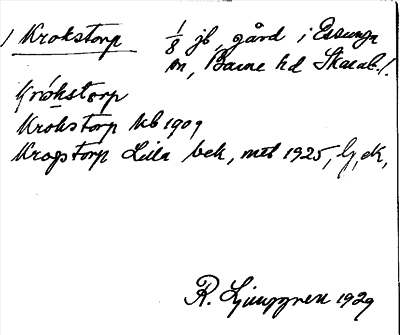 1 Krokstorp 1/8 jb, gård i Essunga
sn, Barne hd Skarab. l.
Krókstorp
Krokstorp kb 1909
Krogstorp Lilla bek, mtl 1925, lj, ek,
R. Ljunggren 1929